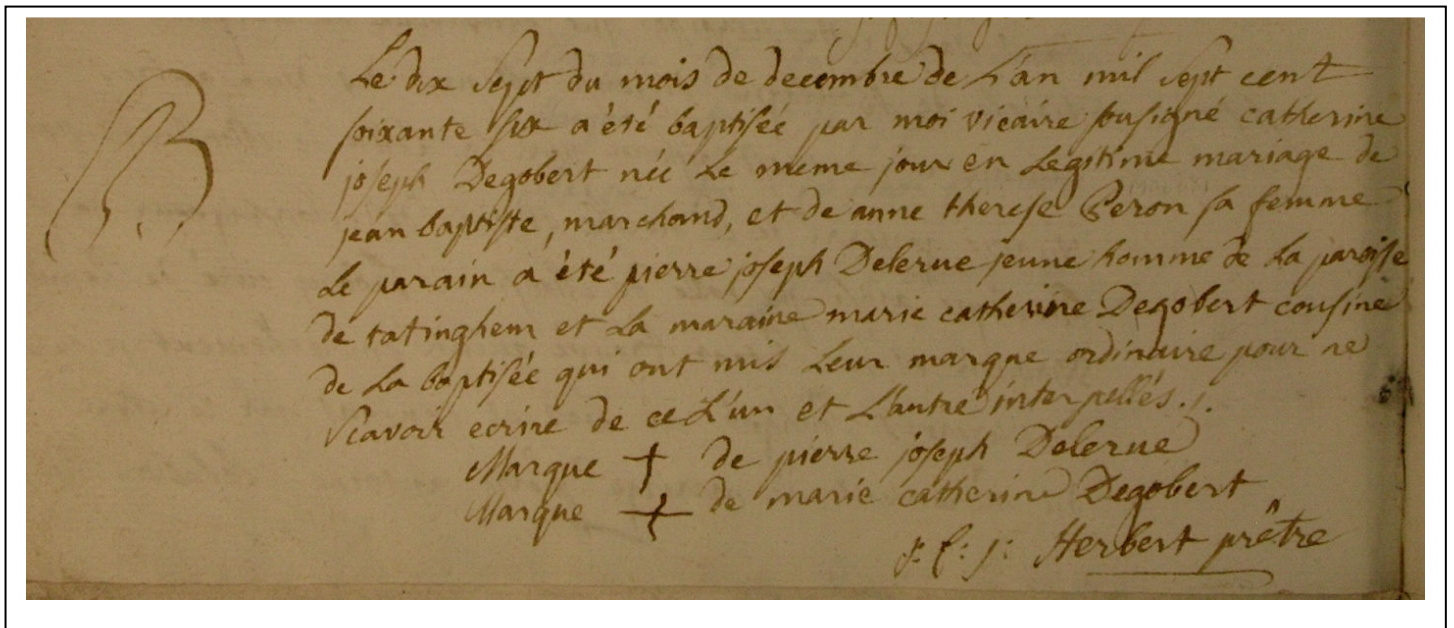 B
Le dix sept du mois de decembre de L'an mil sept cent
soixante six a été baptisée par moi vicaire sousigné catherine
joseph Degobert née Le meme jour en Legitime mariage de
jean baptiste, marchand, et de anne therese Peron sa femme
Le parain a été pierre joseph Delerue jeune homme de La paroisse
de tatinghem et La maraine marie catherine Degobert cousine
de La baptisée qui ont mis Leur marque ordinaire pour ne
scavoir ecrire de ce L'un et L'autre interpellés./.
Marque + de pierre joseph Delerue
Marque + de marie catherine Degobert
Herbert prêtre